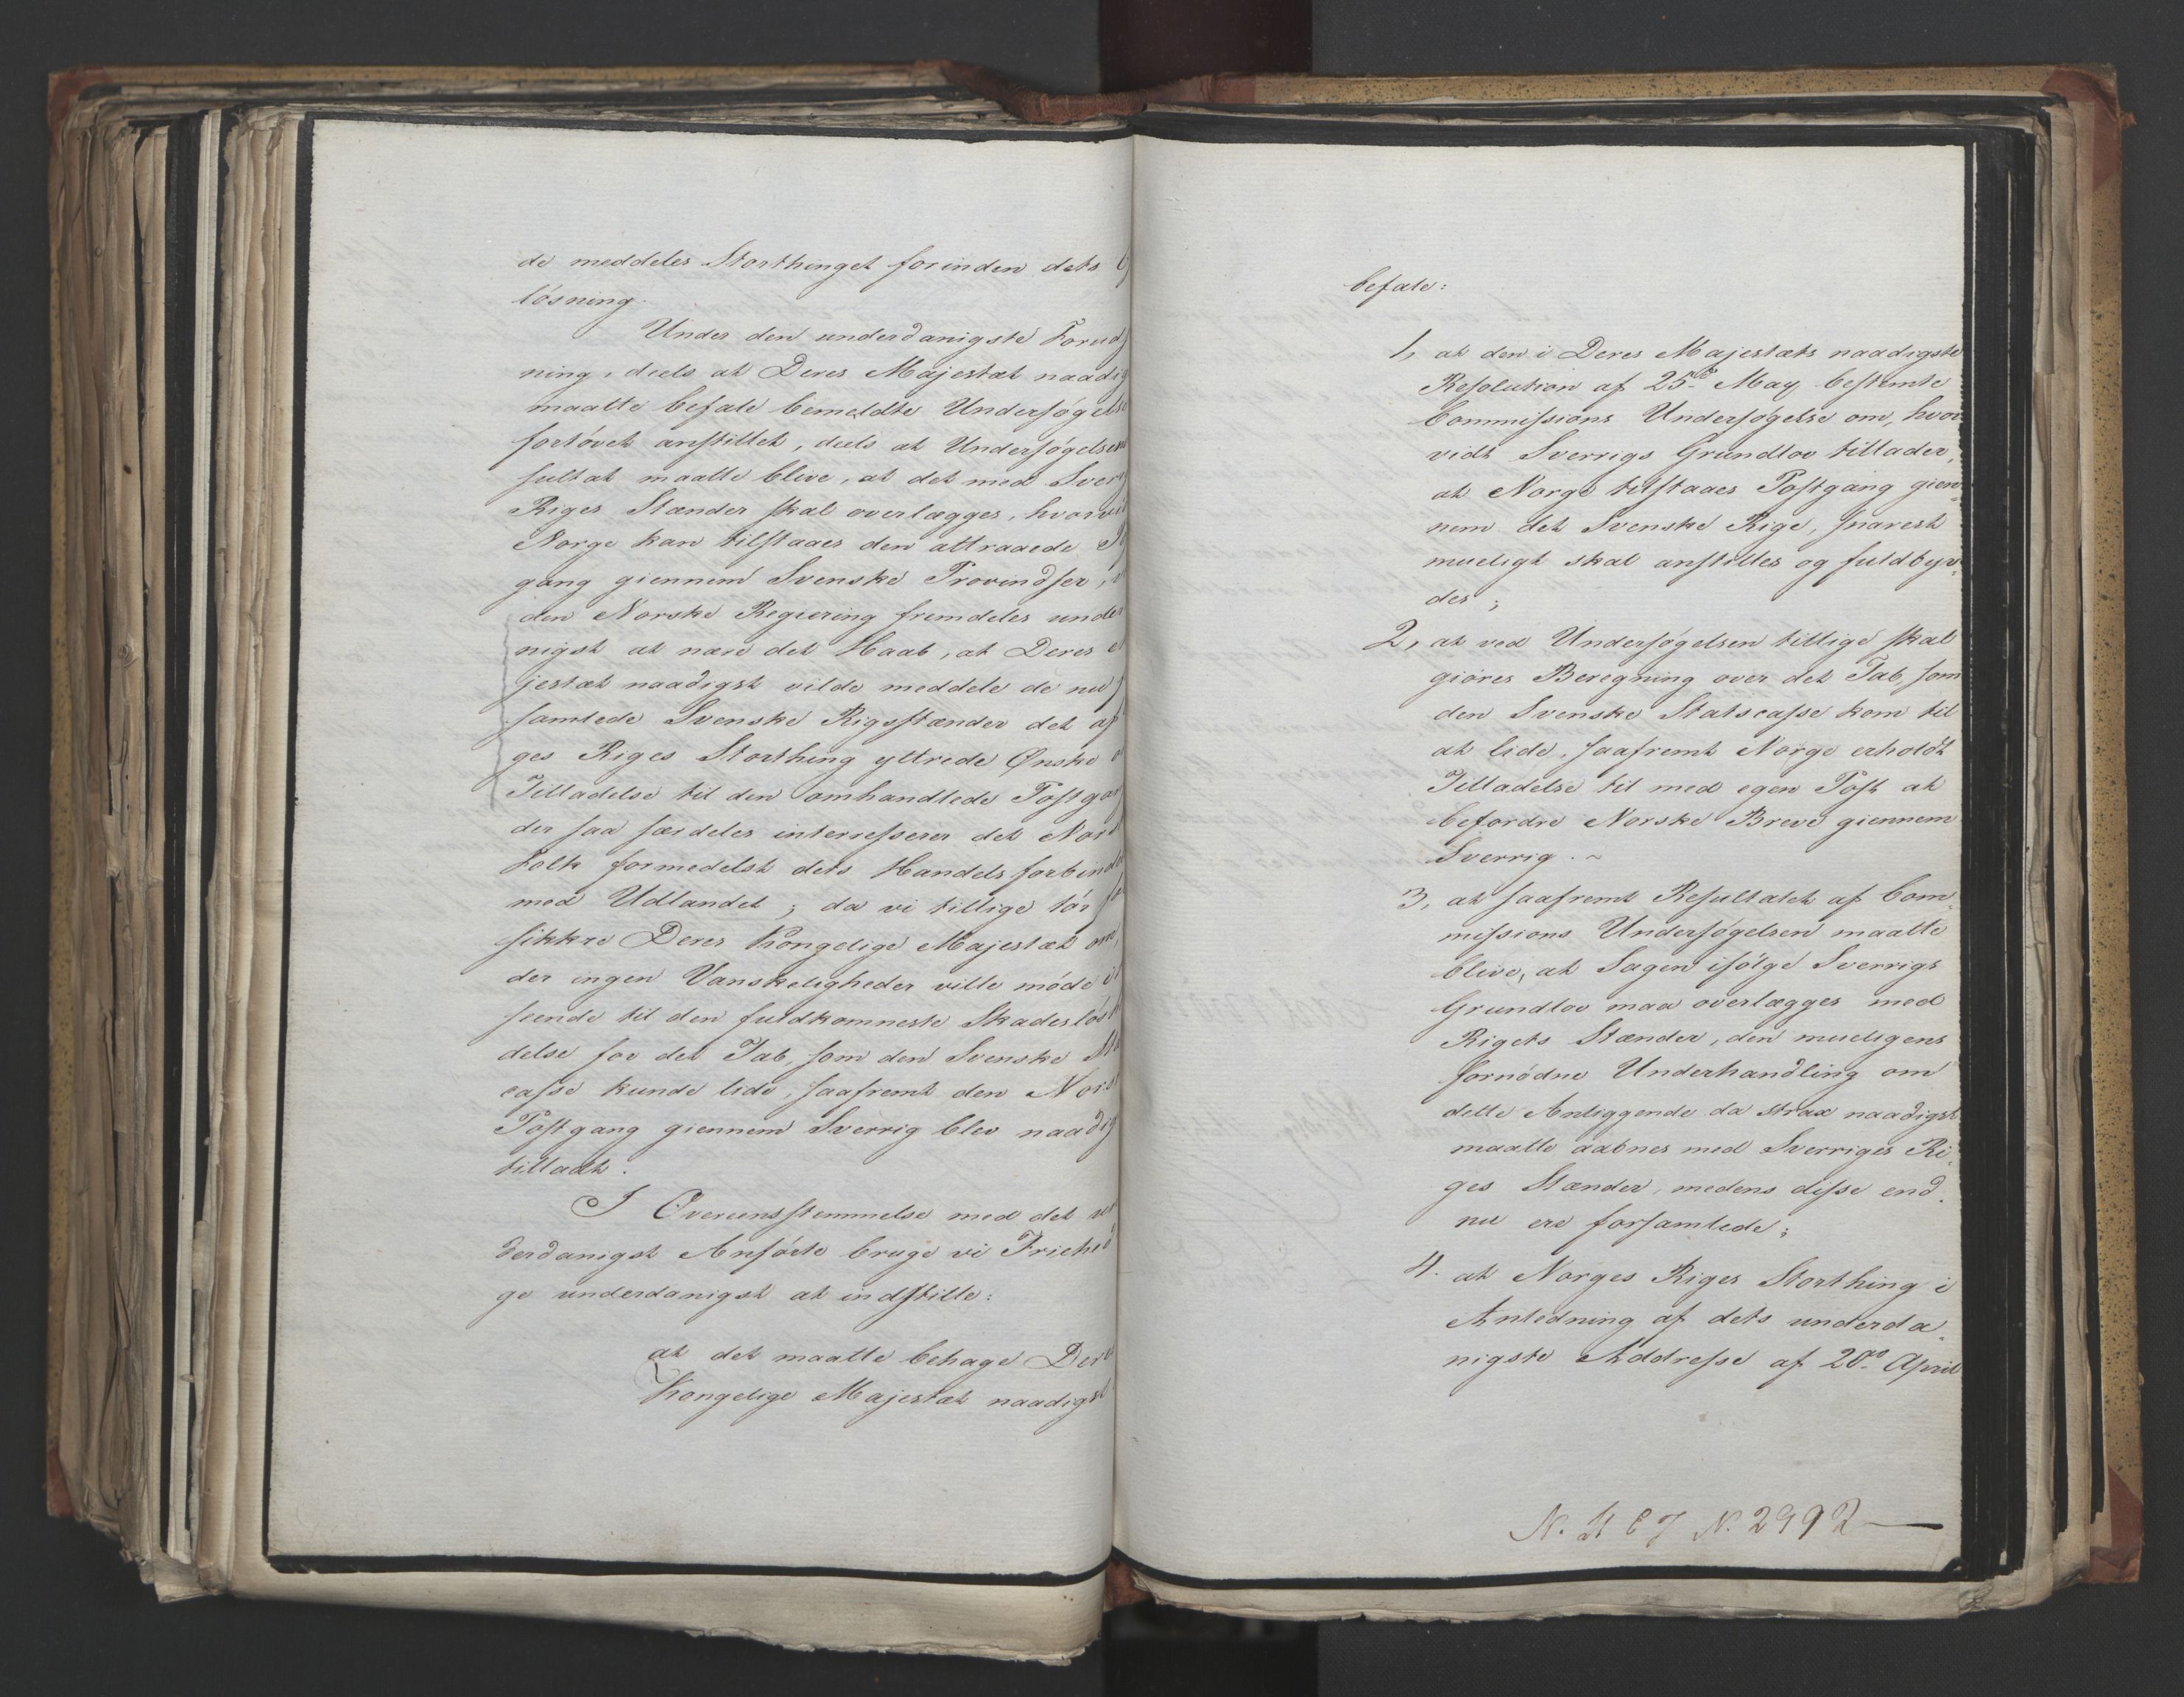 de meddeles Storthinget forinden dets
lösning.
Under den underdanigste Forud
ning, deels at Deres Majestæt naadig
maatte befale bemeldte Undersögelse
fortövet anstillet, deels at Undersögelsens
sultat maatte blive, at det med Sver
Riges Stænder skal overlægges, hvorvi
Norge kan tilstaaes den attraaede
gang giennem Svenske Provindser,
den Norske Regiering fremdeles under
nigst at nære det Haab, at Deres
jestæt naadigst vilde meddele de nu
samlede Svenske Rigsstænder det af
ges Riges Storthing yttrede Ønske
Tilladelse til den omhandlede Postgan
der saa særdeles interresserer det Nors
Folk formedelst dets Handelsforbindel
med Udlandet; da vi tillige tör
sikkre Deres Kongelige Majestæt om,
der ingen Vanskeligheder ville möde i
seende til den fuldkomneste Skadeslös
delse for det Tab, som den Svenske Sta
casse kunde lide, saafremt den Nors
Postgang giennem Sverrig blev naadig
tilladt.
I Overeensstemmelse med det un
derdanigst Anförte bruge vi Frihed
ge underdanigst at indstille:
at det maatte behage Dere
Kongelige Majestæt naadigst
befale:
1, at den i Deres Majestæts naadigste
Resolution af 25de May bestemte
Commissions Undersögelse om, hvor
vidt Sverrigs Grundlov tillader,
at Norge tilstaaes Postgang gien-
nem det Svenske Rige, snarest
mueligt skal anstilles og fuldbyr-
des;
2, at ved Undersögelsen tillige skal
giöres Beregning over det Tab, som
den Svenske Statscasse kom til
at lide, saafremt Norge erholdt
Tilladelse til med egen Post at
befordre Norske Breve giennem
Sverrig. ~
3, at saafremt Resultatet af Com-
missions Undersögelsen maatte
blive, at Sagen ifölge Sverrigs
Grundlov maa overlægges med
Rigets Stænder, den mueligens
fornödne Underhandling om
dette Anliggende da strax naadigst
maatte aabnes med Sverriges Ri-
ges Stænder, medens disse end-
nu ere forsamlede;
4. at Norges Riges Storthing i
Anledning af dets underda-
nigste Addresse af 20de April
N. N. 2992 —